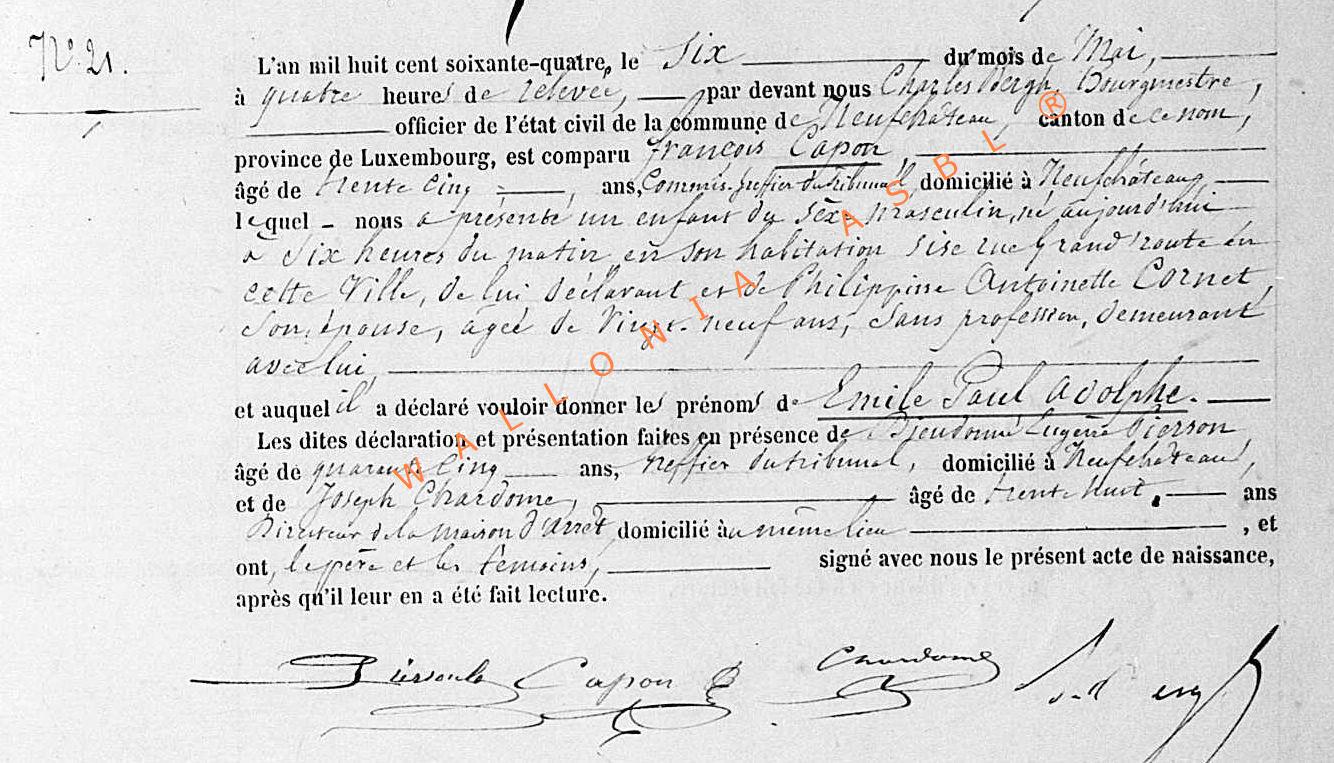 N°. 21.
L'an mil huit cent soixante-quatre, le Six du mois de Mai,
à quatre heures de relevée, par devant nous Charles Bergh, Bourgmestre,
officier de l'état civil de la commune de Neufchâteau, canton de ce nom,
province de Luxembourg, est comparu françois Capon,
âgé de trente cinq ans, Commis greffier du tribunal domicilié à Neufchâteau
lequel nous a présenté un enfant du sexe Masculin, né aujourd'hui
à Six heures du matin en son habitation sise rue Grand'route en
cette Ville, de lui déclarant et de Philippine Antoinette Cornet,
son épouse, agée de Vingt-neuf ans, sans profession, demeurant
avec lui,
et auquel il a déclaré vouloir donner les prénoms de Emile Paul Adolphe.
Les dites déclaration et présentation faites en présence de Dieudonné Eugène Pierson,
âgé de quarante cinq ans, Greffier du tribunal, domicilié à Neufchâteau,
et de Joseph Chardome, âgé de trente huit, ans
Directeur de la maison d'arrêt, domicilié au même lieu , et
ont, le père et les témoins, signé avec nous le présent acte de naissance,
après qu'il leur en a été fait lecture.
Capon Chardome
WALLONIA ASBL ®